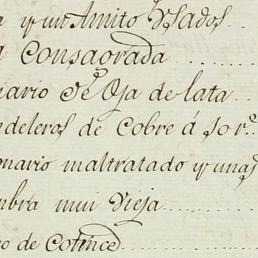 a y un Amito Usados
a Consagrada
diario de Oja de lata
ndeleros de Cobre á 50 r.
onario maltratado y unas
mbra mui Vieja
o de Cotince